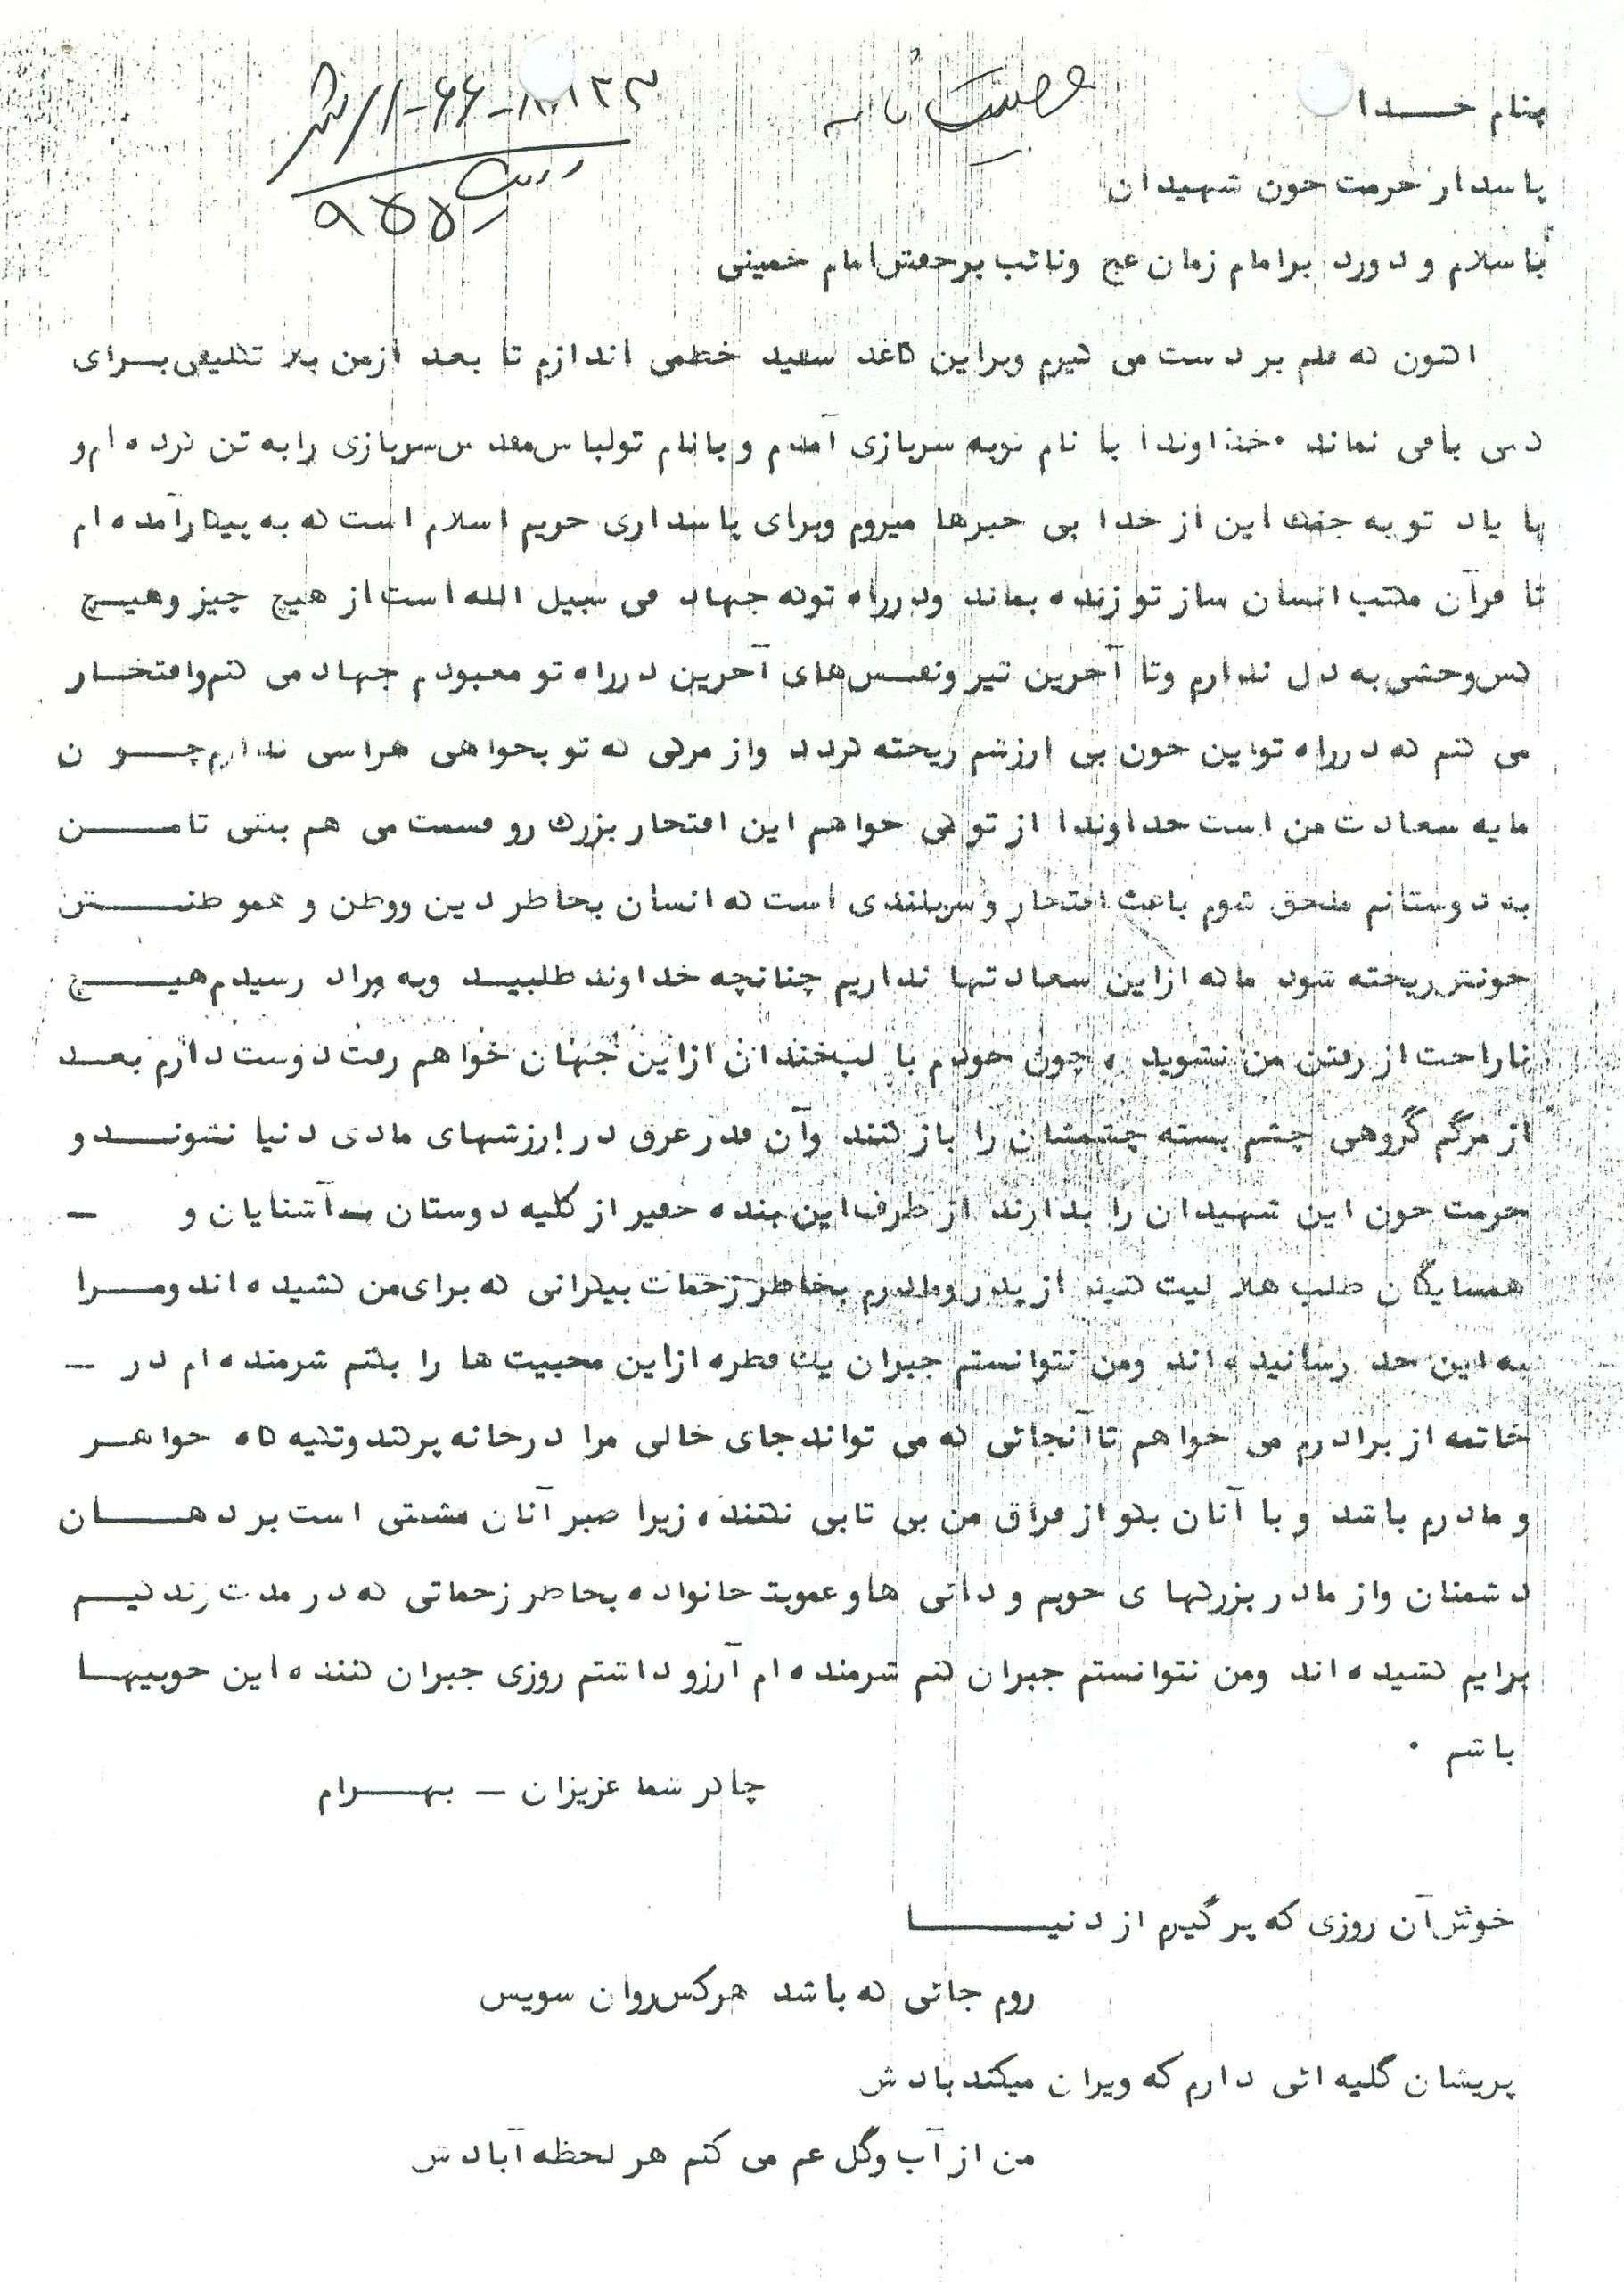 وصیت نامه
بنام خدا
پاسدار حرمت خون شهیدان
با سلام و درود برامام زمان عج ونائب برحقش امام خمینی
اکنون که قلم بر دست می گیرم وبراین کاغذ سفید خطمی اندازم تا بعد ازمن بلا تکلیفی برای
کسی باقی نماند . خداوندا با نام توبه سربازی آمدم و بانام تولباس مقدس سربازی رابه تن کرده ام و
با یاد تو به جنگ این از خدا بی خبرها میروم وبرای پاسداری حریم اسلام است که به پیکارآمده ام
تا قرآن مکتب انسان ساز تو زنده بماند ودرراه توکه جهاد فی سبیل الله است از هیچ چیز وهیچ
کس وحشی به دل ندارم وتا آخرین تیر ونفس های آخرین درراه تو معبودم جهاد می کنم وافتخار
می کنم که درراه تواین خون بی ارزشم ریخته گردد واز مرگی که تو بخواهی هراسی ندارم چون
مایه سعادت من است خداوندا از تو می خواهم این افتخار بزرگ رو قسمت می هم بکنی تا من
به دوستانم ملحق شوم باعث افتخار و سربلندی است که انسان بخاطر دین ووطن و هموطنش
خونش ریخته شود ماکه ازاین سعادتها نداریم چنانچه خداوند طلبید وبه مراد رسیدم هیچ
ناراحت از رفتن من نشوید ، چون خودم با لبخندان ازاین جهان خواهم رفت دوست دارم بعد
از مرگم گروهی چشم بسته چشمشان را باز کنند وآن قدر غرق در ارزشهای مادی دنیا نشوند و
حرمت خون این شهیدان را بدارند از طرف این بنده حقیر از کلیه دوستان – آشنایان و –
همسایگان طلب هلا لیت کنید از پدر ومادرم بخاطر زحمات بیکرانی که برای من کشیده اند ومرا
به این حد رسانیده اند ومن نتوانستم جبران یک قطره ازاین محبیت ها را بکنم شرمنده ام در –
خاتمه از برادرم می خواهم تاآنجائی که می تواند جای خالی مرا درخانه پرکند وتکیه گاه خواهر
و مادرم باشد و با آنان بگو از فراق من بی تابی نکنند ، زیرا صبر آنان مشتی است بر دهان
دشمنان واز مادر بزرگهای خوبم و دائی ها و عمویت خانواده بخاطر زحماتی که در مدت زندگیم
برایم کشیده اند ومن نتوانستم جبران کنم شرمنده ام آرزو داشتم روزی جبران کننده این خوبیها
باشم .
چاکر شما عزیزان – بهرام
خوش آن روزی که پر گیرم از دنیا
روم جائی که باشد هرکس روان سویس
پریشان گلیه ائی دارم که ویران میکند بادش
من از آب وگل غم می کنم هر لحظه آبادش